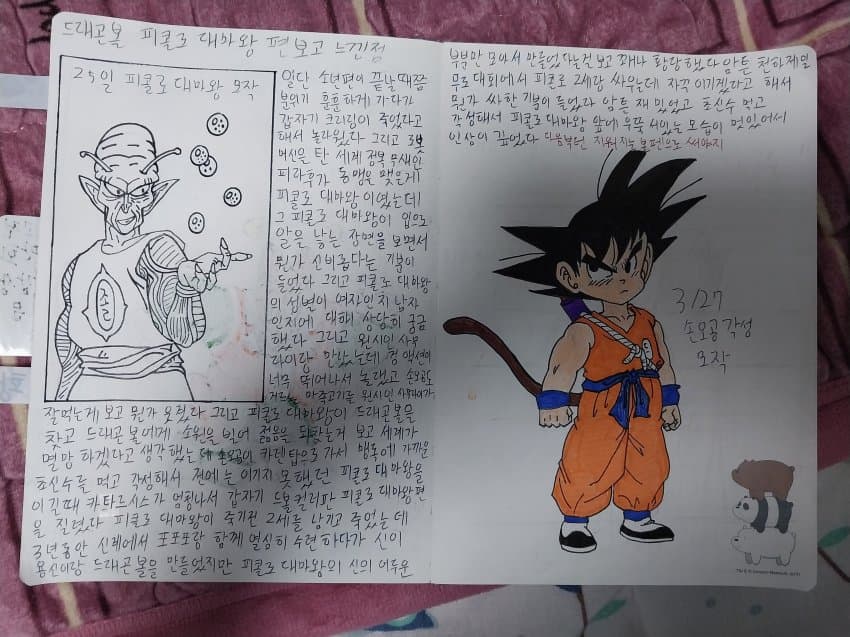 드래곤볼 피콜로 대마왕 편보고 느낀점
25일 피콜로 대마왕 모작
일단 소년편이 끝날때쯤
분위기 훈훈하게 가다가
갑자기 크리링이 죽었다고
해서 놀라웠다 그리고
버섯을 탄 세계 정복
피라후가 동맹을 맺은게
피콜로 대마왕 이였는데
그 피콜로 대마왕이 입으로
알을 낳는 장면을 보면서
뭔가 신비롭다는 기분이
들었다 그리고 피콜로 대마왕
의 성별이 여자인지 남자
인지에 대해 상당히 궁금
했다 그리고 원시인 사무
라이랑 만났는데 헝
너무 뛰어나서 놀랬고 손오공도
물고기를 원시인
잘먹는게 보고 뭔가 웃겼다 그리고 피콜로 대마왕이 드래곤볼을
찾고 드래곤볼에게 소원을 빌어 젊음을 되찾는거 보고 세계가
멸망 하겠다고 생각했는데 손오공이 카린탑으로 가서 맹독에 가까운
초신수를 먹고 각성해서 전에는 이기지 못했던 피콜로 대마왕을
이긴때 카타르시스가 엄청나서 갑자기 드볼컬러판 피콜로 대마왕편
을 질렀다 피콜로 대마왕이 죽기전 2세를 남기고 죽었는데
3년동안 신계에서 포포랑 함께 열심히 수련하다가 신이
용신이랑 드래곤볼을 만들었지만 피콜로 대마왕의 신의 어두운
부분만 모아서 만들었다는걸 보고 꽤나 황당했다 암튼 천하제일
무도대회에서 피콜로 2세랑 싸우는데 자꾸 이기겠다고 해서
뭔가 싸한 기분이 들었다 암튼 재밌었고 초신수 먹고
각성해서 피콜로 대마왕 앞에 우뚝 서있는 모습이 멋있어서
인상이 깊었다 다음부턴 지워지는 볼펜으로 써야지
3/27
손오공 각성
모작